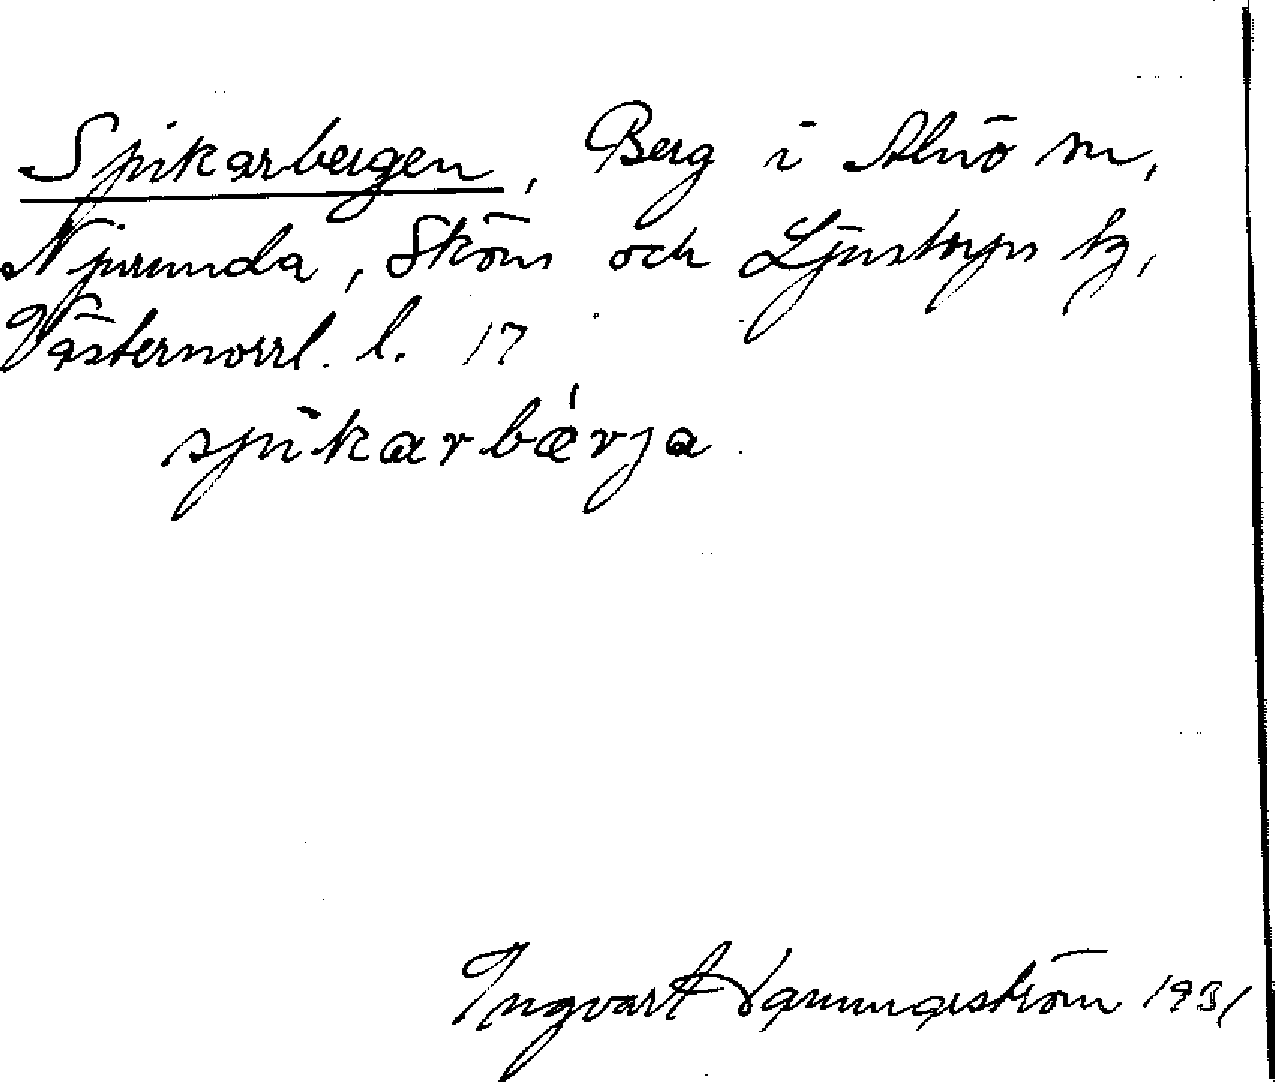 Spikarbergen, Berg i Alnö m,
Njurunda, Sköns och Ljustorps tg,
Västernorrl. l. 17
spikarbǽrja
Ingvart 1931